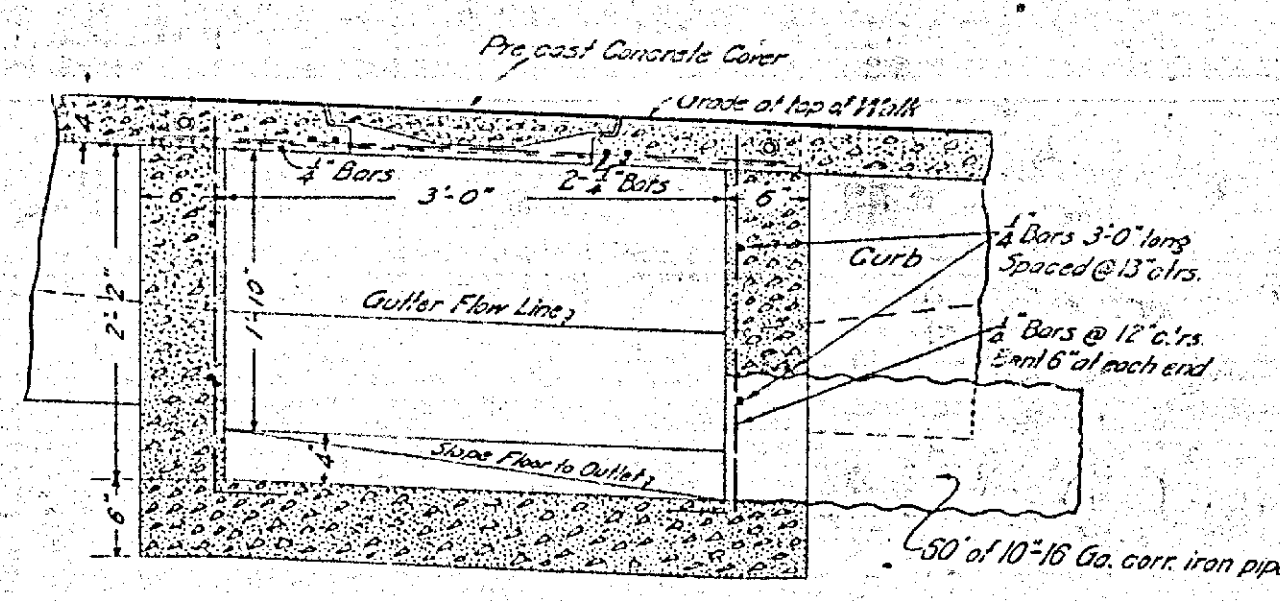 Pre cast Concrete Cover
Grade at top of Walk
4"
1/4" Bars
2-1/4" Bars
6"
3'-0"
6"
1/4" Bars 3'-0" long
Spaced @ 13" ctrs.
Curb
2'-2"
1'-10"
Gutter Flow Line
1/4" Bars @ 12" c.'rs.
Bent 6" at each end
4"
Slope Floor to Outlet
6"
50' of 10"-16 Ga. corr. iron pipe